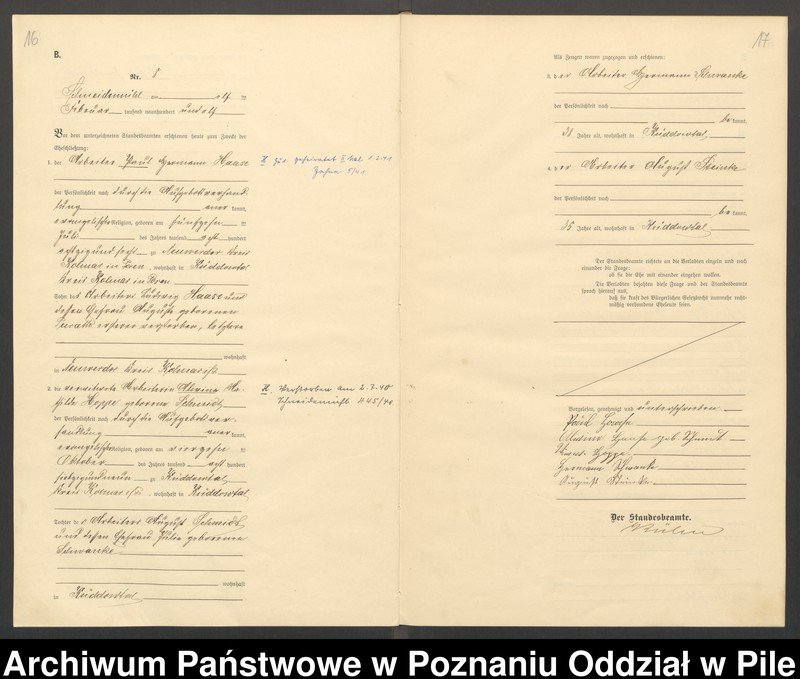 16
B.
Nr. 8
Schneidemühl am elf ten
Februar tausend neunhundert und elf
Vor dem unterzeichneten Standesbeamten erschienen heute zum Zwecke der
Eheschließung:
1. der Arbeiter Paul Hermann Haase
der Persönlichkeit nach durch die Aufgebotsverhand
lung aner kannt,
evangelischer Religion, geboren am fünfzehn ten
Juli des Jahres tausend acht hundert
achtzig und sechs zu Neuwerder Kreis
Kolmar in Posen, wohnhaft in Küddowtal
Kreis Kolmar in Posen
Sohn des Arbeiters Ludwig Haase und
dessen Ehefrau Auguste geborenen
ersterer verstorben, letztere
wohnhaft
in Neuwerder Kreis Kolmar
2. die verwitwete Arbeiterin Alwine
Hoppe geborene Schmidt
der Persönlichkeit nach durch die Aufgebotsver-
handlung aner kannt,
evangelischer Religion, geboren am vierzehn ten
Oktober des Jahres tausend acht hundert
siebzig und neun zu Küddowtal
Kreis Kolmar, wohnhaft in Küddowtal
Tochter des Arbeiters August Schmidt
und dessen Ehefrau Julie geborenen
Schwanke
wohnhaft
in Küddowtal
H. Verstorben am 2.7.40
Schneidemühl 445/40
17
Als Zeugen waren zugezogen und erschienen:
3. der Arbeiter Hermann Schwanke
der Persönlichkeit nach
be kannt,
31 Jahre alt, wohnhaft in Küddowtal
4. der Arbeiter August Steinke
der Persönlichkeit nach
be kannt,
35 Jahre alt, wohnhaft in Küddowtal
Der Standesbeamte richtete an die Verlobten einzeln und nach
einander die Frage:
ob sie die Ehe mit einander eingehen wollen.
Die Verlobten bejahten diese Frage und der Standesbeamte
sprach hierauf aus,
daß sie kraft des Bürgerlichen Gesetzbuchs nunmehr recht-
mäßig verbundene Eheleute seien.
Vorgelesen, genehmigt und unterschrieben
Paul Haase
Alwine Haase geb. Schmidt
Hoppe
Hermann Schwanke
August Steinke
Der Standesbeamte.
Archiwum Państwowe w Poznaniu Oddział w Pile